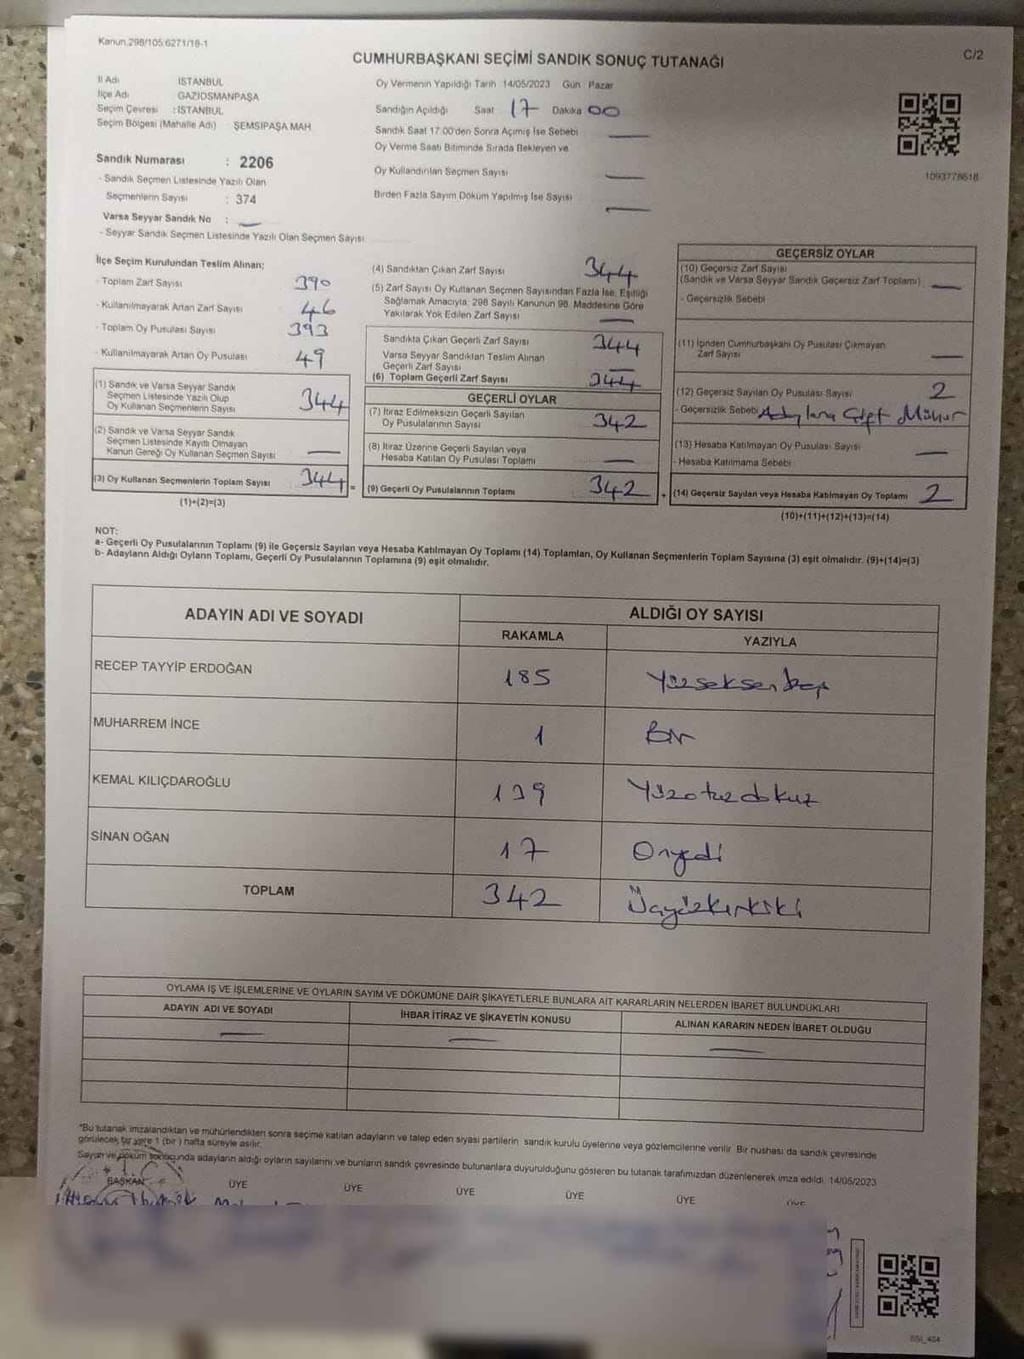 Kanun.298/105:6271/18-1
C/2
CUMHURBAŞKANI SEÇİMİ SANDIK SONUÇ TUTANAĞI
İl Adı İSTANBUL
İlçe Adı GAZİOSMANPAŞA
Seçim Çevresi : İSTANBUL
Seçim Bölgesi (Mahalle Adı) ŞEMSİPAŞA MAH
Sandık Numarası : 2206
- Sandık Seçmen Listesinde Yazılı Olan
Seçmenlerin Sayısı : 374
Varsa Seyyar Sandık No : —
- Seyyar Sandık Seçmen Listesinde Yazılı Olan Seçmen Sayısı
Oy Vermenin Yapıldığı Tarih 14/05/2023 Gün : Pazar
Sandığın Açıldığı Saat 17 Dakika 00
Sandık Saat 17.00'den Sonra Açılmış İse Sebebi —
Oy Verme Saati Bitiminde Sırada Bekleyen ve
Oy Kullandırılan Seçmen Sayısı —
Birden Fazla Sayım Döküm Yapılmış İse Sayısı —
1093778618
İlçe Seçim Kurulundan Teslim Alınan;
- Toplam Zarf Sayısı 390
- Kullanılmayarak Artan Zarf Sayısı 46
- Toplam Oy Pusulası Sayısı 393
- Kullanılmayarak Artan Oy Pusulası 49
(1) Sandık ve Varsa Seyyar Sandık
Seçmen Listesinde Yazılı Olup
Oy Kullanan Seçmenlerin Sayısı 344
(2) Sandık ve Varsa Seyyar Sandık
Seçmen Listesinde Kayıtlı Olmayan
Kanun Gereği Oy Kullanan Seçmen Sayısı —
(3) Oy Kullanan Seçmenlerin Toplam Sayısı 344 =
(1)+(2)=(3)
(4) Sandıktan Çıkan Zarf Sayısı 344
(5) Zarf Sayısı Oy Kullanan Seçmen Sayısından Fazla İse, Eşitliği
Sağlamak Amacıyla, 298 Sayılı Kanunun 98. Maddesine Göre
Yakılarak Yok Edilen Zarf Sayısı —
Sandıkta Çıkan Geçerli Zarf Sayısı 344
Varsa Seyyar Sandıktan Teslim Alınan
Geçerli Zarf Sayısı —
(6) Toplam Geçerli Zarf Sayısı 344
GEÇERLİ OYLAR
(7) İtiraz Edilmeksizin Geçerli Sayılan
Oy Pusulalarının Sayısı 342
(8) İtiraz Üzerine Geçerli Sayılan veya
Hesaba Katılan Oy Pusulası Toplamı —
(9) Geçerli Oy Pusulalarının Toplamı 342 +
GEÇERSİZ OYLAR
(10) Geçersiz Zarf Sayısı
(Sandık ve Varsa Seyyar Sandık Geçersiz Zarf Toplamı) —
- Geçersizlik Sebebi
(11) İçinden Cumhurbaşkanı Oy Pusulası Çıkmayan
Zarf Sayısı —
(12) Geçersiz Sayılan Oy Pusulası Sayısı 2
- Geçersizlik Sebebi Adaylara Çift Mühür
(13) Hesaba Katılmayan Oy Pusulası Sayısı —
- Hesaba Katılmama Sebebi
(14) Geçersiz Sayılan veya Hesaba Katılmayan Oy Toplamı 2
(10)+(11)+(12)+(13)=(14)
NOT:
a- Geçerli Oy Pusulalarının Toplamı (9) ile Geçersiz Sayılan veya Hesaba Katılmayan Oy Toplamı (14) Toplamları, Oy Kullanan Seçmenlerin Toplam Sayısına (3) eşit olmalıdır. (9)+(14)=(3)
b- Adayların Aldığı Oyların Toplamı, Geçerli Oy Pusulalarının Toplamına (9) eşit olmalıdır.
ADAYIN ADI VE SOYADI ALDIĞI OY SAYISI
RAKAMLA YAZIYLA
RECEP TAYYİP ERDOĞAN 185 Yüzseksenbeş
MUHARREM İNCE 1 Bir
KEMAL KILIÇDAROĞLU 139 Yüzotuzdokuz
SİNAN OĞAN 17 Onyedi
TOPLAM 342 Üçyüzkırkiki
OYLAMA İŞ VE İŞLEMLERİNE VE OYLARIN SAYIM VE DÖKÜMÜNE DAİR ŞİKAYETLERLE BUNLARA AİT KARARLARIN NELERDEN İBARET BULUNDUKLARI
ADAYIN ADI VE SOYADI İHBAR İTİRAZ VE ŞİKAYETİN KONUSU ALINAN KARARIN NEDEN İBARET OLDUĞU
— — —
*Bu tutanak imzalandıktan ve mühürlendikten sonra seçime katılan adayların ve talep eden siyasi partilerin sandık kurulu üyelerine veya gözlemcilerine verilir. Bir nushası da sandık çevresinde
görülecek bir yere 1 (bir) hafta süreyle asılır.
Sayım ve döküm sonucunda adayların aldığı oyların sayılarını ve bunların sandık çevresinde bulunanlara duyurulduğunu gösteren bu tutanak tarafımızdan düzenlenerek imza edildi. 14/05/2023
BAŞKAN ÜYE ÜYE ÜYE ÜYE ÜYE ÜYE